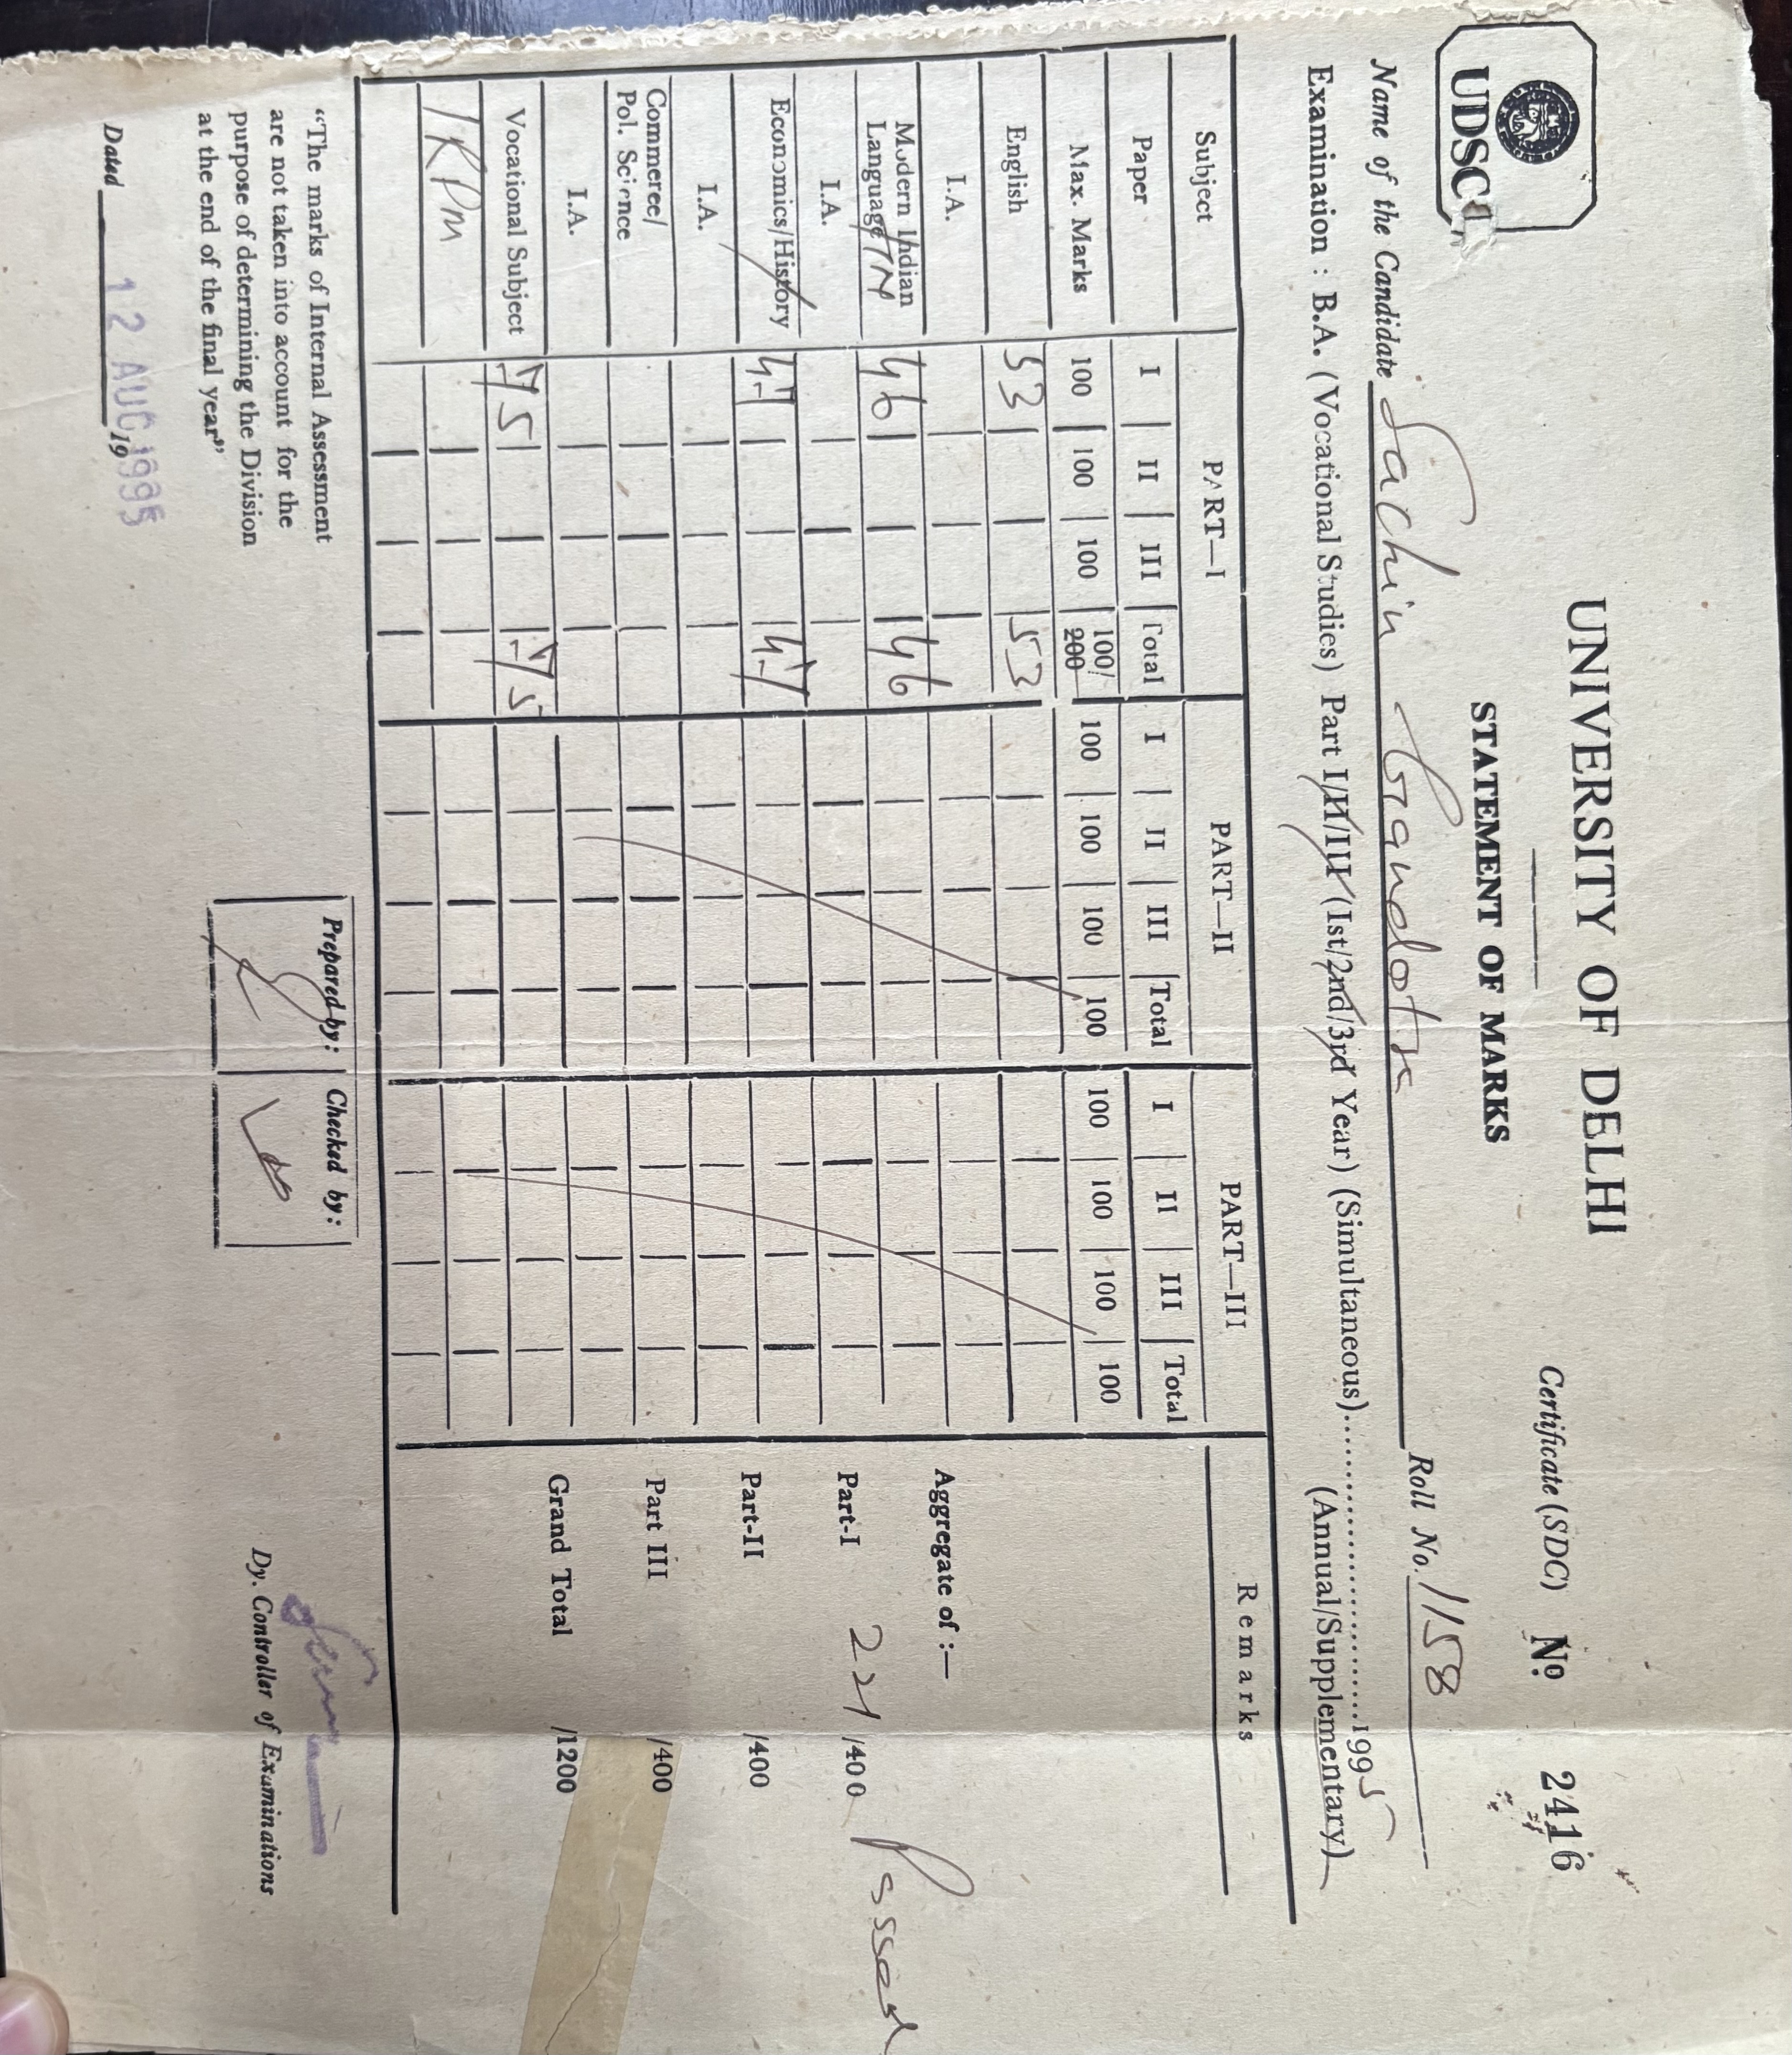 UDSC
UNIVERSITY OF DELHI
STATEMENT OF MARKS
Certificate (SDC) No 2416
Name of the Candidate Sachin Roll No. 1158
Examination : B.A. (Vocational Studies) Part I/II/III (Ist/2nd/3rd Year) (Simultaneous)..............................1995
(Annual/Supplementary)
Subject PART—I PART—II PART—III Remarks
Paper I II III Total I II III Total I II III Total
Max. Marks 100 100 100 100/200 100 100 100 100 100 100 100 100
English 53 53
I.A.
Modern Indian Language 46 46
I.A.
Economics/History 47 47
I.A.
Commerce/Pol. Science
I.A.
Vocational Subject 75 75
IRPM
Aggregate of :—
Part-I 221 /400 Passed
Part-II /400
Part III /400
Grand Total /1200
“The marks of Internal Assessment
are not taken into account for the
purpose of determining the Division
at the end of the final year”
Prepared by: Checked by:
Dated 12 AUG 1995 19
Dy. Controller of Examinations